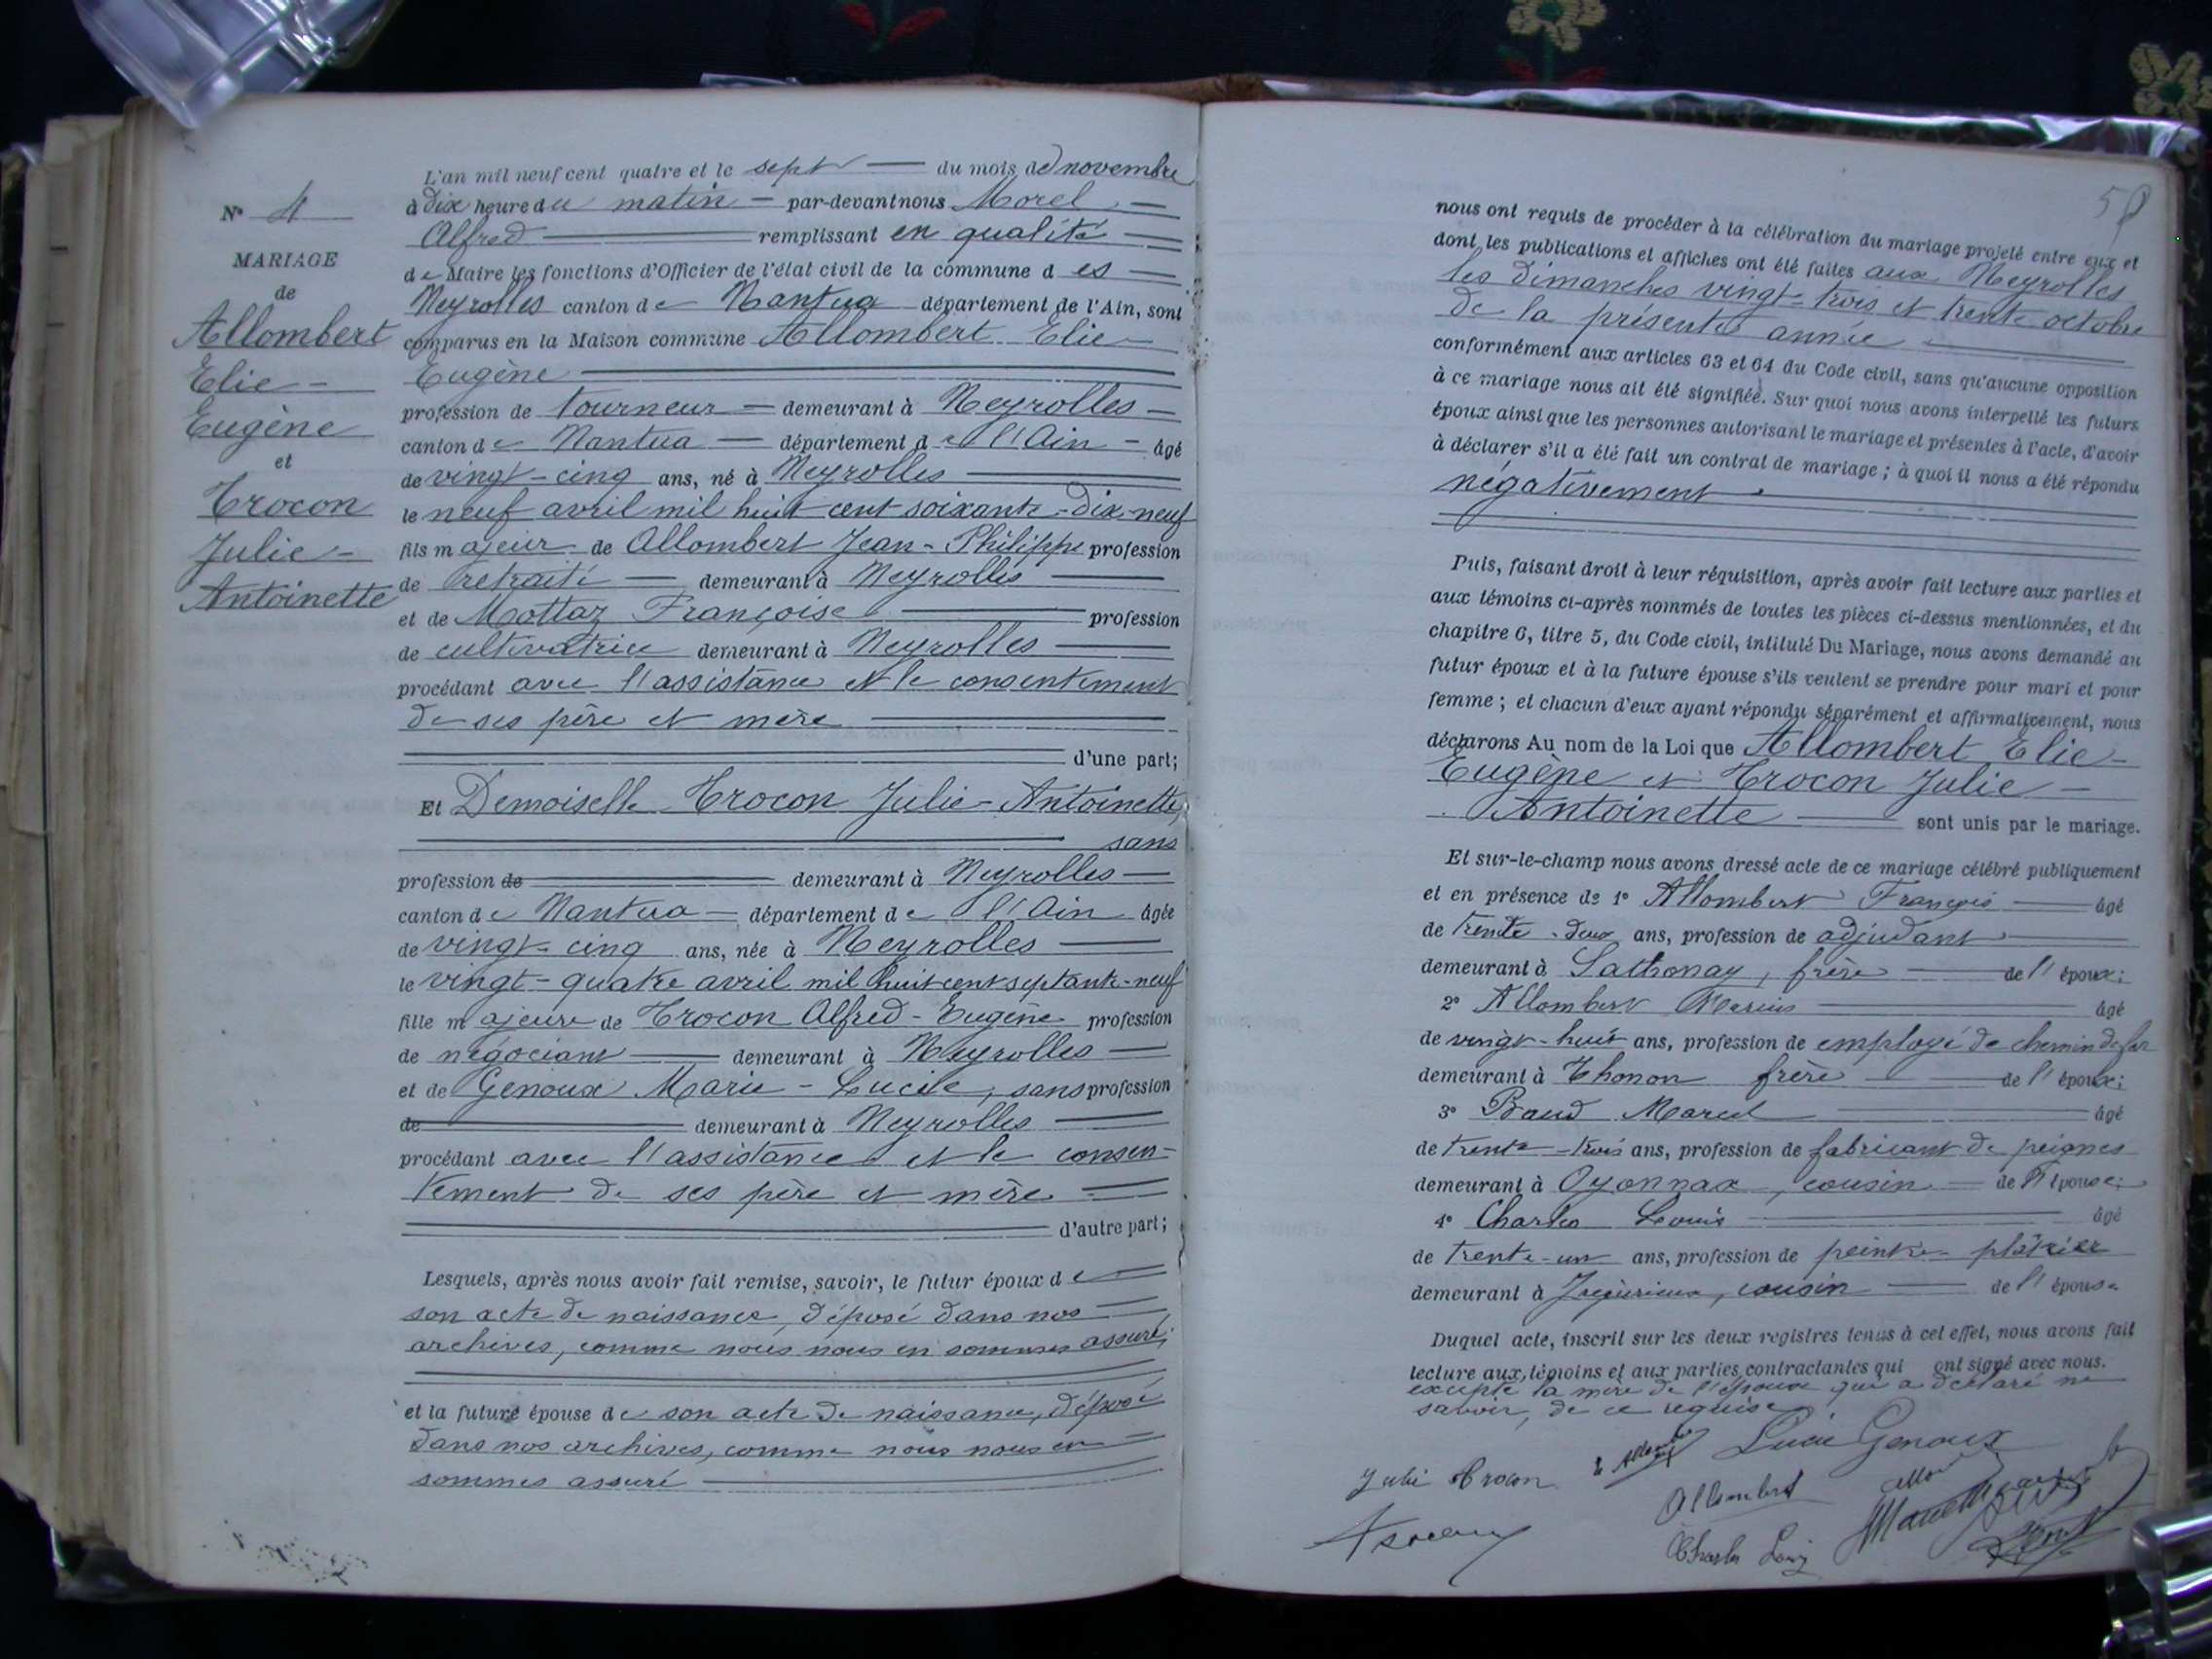 L'an mil neuf cent quatre et le sept du mois de novembre
à dix heure du matin par-devant nous Morel
Alfred remplissant en qualité
de Maire les fonctions d'Officier de l'état civil de la commune d es
Neyrolles canton de Nantua département de l'Ain, sont
comparus en la Maison commune Allombert Elie
Eugène
profession de tourneur demeurant à Neyrolles
canton de Nantua département de l'Ain âgé
de vingt-cinq ans, né à Neyrolles
le neuf avril mil huit cent soixante-dix-neuf
fils majeur de Allombert Jean-Philippe profession
de retraité demeurant à Neyrolles
et de Mottaz Françoise profession
de cultivatrice demeurant à Neyrolles
procédant avec l'assistance et le consentement
de ses père et mère
d'une part;
Et Demoiselle Trocon Julie-Antoinette,
sans
profession de demeurant à Neyrolles
canton de Nantua département de l'Ain âgée
de vingt-cinq ans, née à Neyrolles
le vingt-quatre avril mil huit cent septante-neuf
fille majeure de Trocon Alfred-Eugène profession
de négociant demeurant à Neyrolles
et de Genoux Marie-Lucie, sans profession
de demeurant à Neyrolles
procédant avec l'assistance et le consen-
tement de ses père et mère
d'autre part;
Lesquels, après nous avoir fait remise, savoir, le futur époux de
son acte de naissance, déposé dans nos
archives, comme nous nous en sommes assuré;
et la future épouse de son acte de naissance, déposé
dans nos archives, comme nous nous en
sommes assuré
N° 4
MARIAGE
de
Allombert
Elie-
Eugène
et
Trocon
Julie-
Antoinette
nous ont requis de procéder à la célébration du mariage projeté entre eux et
dont les publications et affiches ont été faites aux Neyrolles
les dimanches vingt-trois et trente octobre
de la présente année
conformément aux articles 63 et 64 du Code civil, sans qu'aucune opposition
à ce mariage nous ait été signifiée. Sur quoi nous avons interpellé les futurs
époux ainsi que les personnes autorisant le mariage et présentes à l'acte, d'avoir
à déclarer s'il a été fait un contrat de mariage; à quoi il nous a été répondu
négativement.
Puis, faisant droit à leur réquisition, après avoir fait lecture aux parties et
aux témoins ci-après nommés de toutes les pièces ci-dessus mentionnées, et du
chapitre 6, titre 5, du Code civil, intitulé Du Mariage, nous avons demandé au
futur époux et à la future épouse s'ils veulent se prendre pour mari et pour
femme; et chacun d'eux ayant répondu séparément et affirmativement, nous
déclarons Au nom de la Loi que Allombert Elie-
Eugène et Trocon Julie-
Antoinette sont unis par le mariage.
Et sur-le-champ nous avons dressé acte de ce mariage célébré publiquement
et en présence de 1° Allombert François âgé
de trente-deux ans, profession de adjudant
demeurant à Sathonay, frère de l'époux;
2° Allombert Marius âgé
de vingt-huit ans, profession de employé de chemin de fer
demeurant à Thonon frère de l'époux;
3° Baud Marcel âgé
de trente-trois ans, profession de fabricant de peignes
demeurant à Oyonnax, cousin de l'épouse;
4° Charles Louis âgé
de trente-un ans, profession de peintre-plâtrier
demeurant à Jujurieux, cousin de l'épouse
Duquel acte, inscrit sur les deux registres tenus à cet effet, nous avons fait
lecture aux témoins et aux parties contractantes qui ont signé avec nous.
excepté la mère de l'époux qui a déclaré ne
savoir, de ce requise
Julie Trocon E Allombert Lucie Genoux
Allombert
Trocon Charles Louis